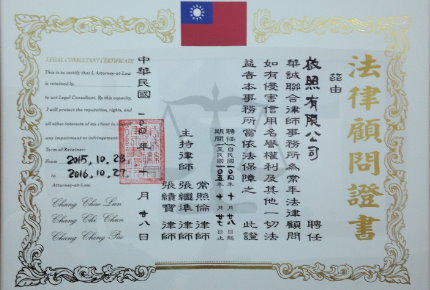 法律顧問證書
茲由
啟照有限公司 聘任
華誠聯合律師事務所為常年法律顧問
如有侵害信用名譽權利及其他一切法
益者本事務所當依法保障之 此證
聘任 自民國一〇四年十月廿八日起
期間 至民國一〇五年十月廿七日止
主持律師
常照倫 律師
張繼準 律師
張績寶 律師
中華民國一〇四年十一月廿八日
LEGAL CONSULTANT CERTIFICATE
This is to certify that I, Attorney-at-Law
is retained by
to act Legal Consultant. By this capacity,
I will protect the reputation, rights, and
all other interest of my client from
any impairment or infringement
Term of Retainer
From 2015.10.28
to 2016.10.27
Attorney-at-Law
Chang Chao Lun
Chang Chi Chun
Chang Ching Pao